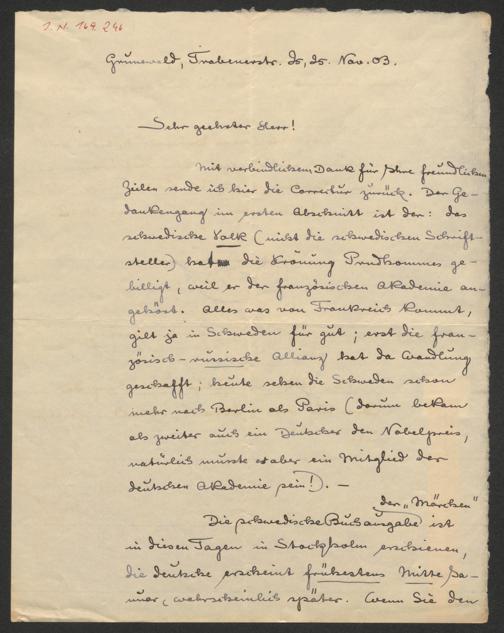 J. N. 169.246
Grunewald, Trabenerstr. 25, 25. Nov. 03.
Sehr geehrter Herr!
Mit verbindlichem Dank für Ihre freundlichen
Zeilen sende ich hier die Correctur zurück. Der Ge-
dankengang im ersten Abschnitt ist der: das
schwedische Volk (nicht die schwedischen Schrift-
steller) hat die Krönung Prudhommes ge-
billigt, weil er der französischen Akademie an-
gehört. Alles was von Frankreich kommt,
gilt ja in Schweden für gut; erst die fran-
zösisch-russische Allianz hat da Wandlung
geschafft; heute sehen die Schweden schon
mehr nach Berlin als Paris (darum bekam
als zweiter auch ein Deutscher den Nobelpreis,
natürlich musste es aber ein Mitglied der
deutschen Akademie sein!). —
der „Märchen"
Die schwedische Buchausgabe ist
in diesen Tagen in Stockholm erschienen,
die deutsche erscheint frühestens Mitte Ja-
nuar, wahrscheinlich später. Wenn Sie den